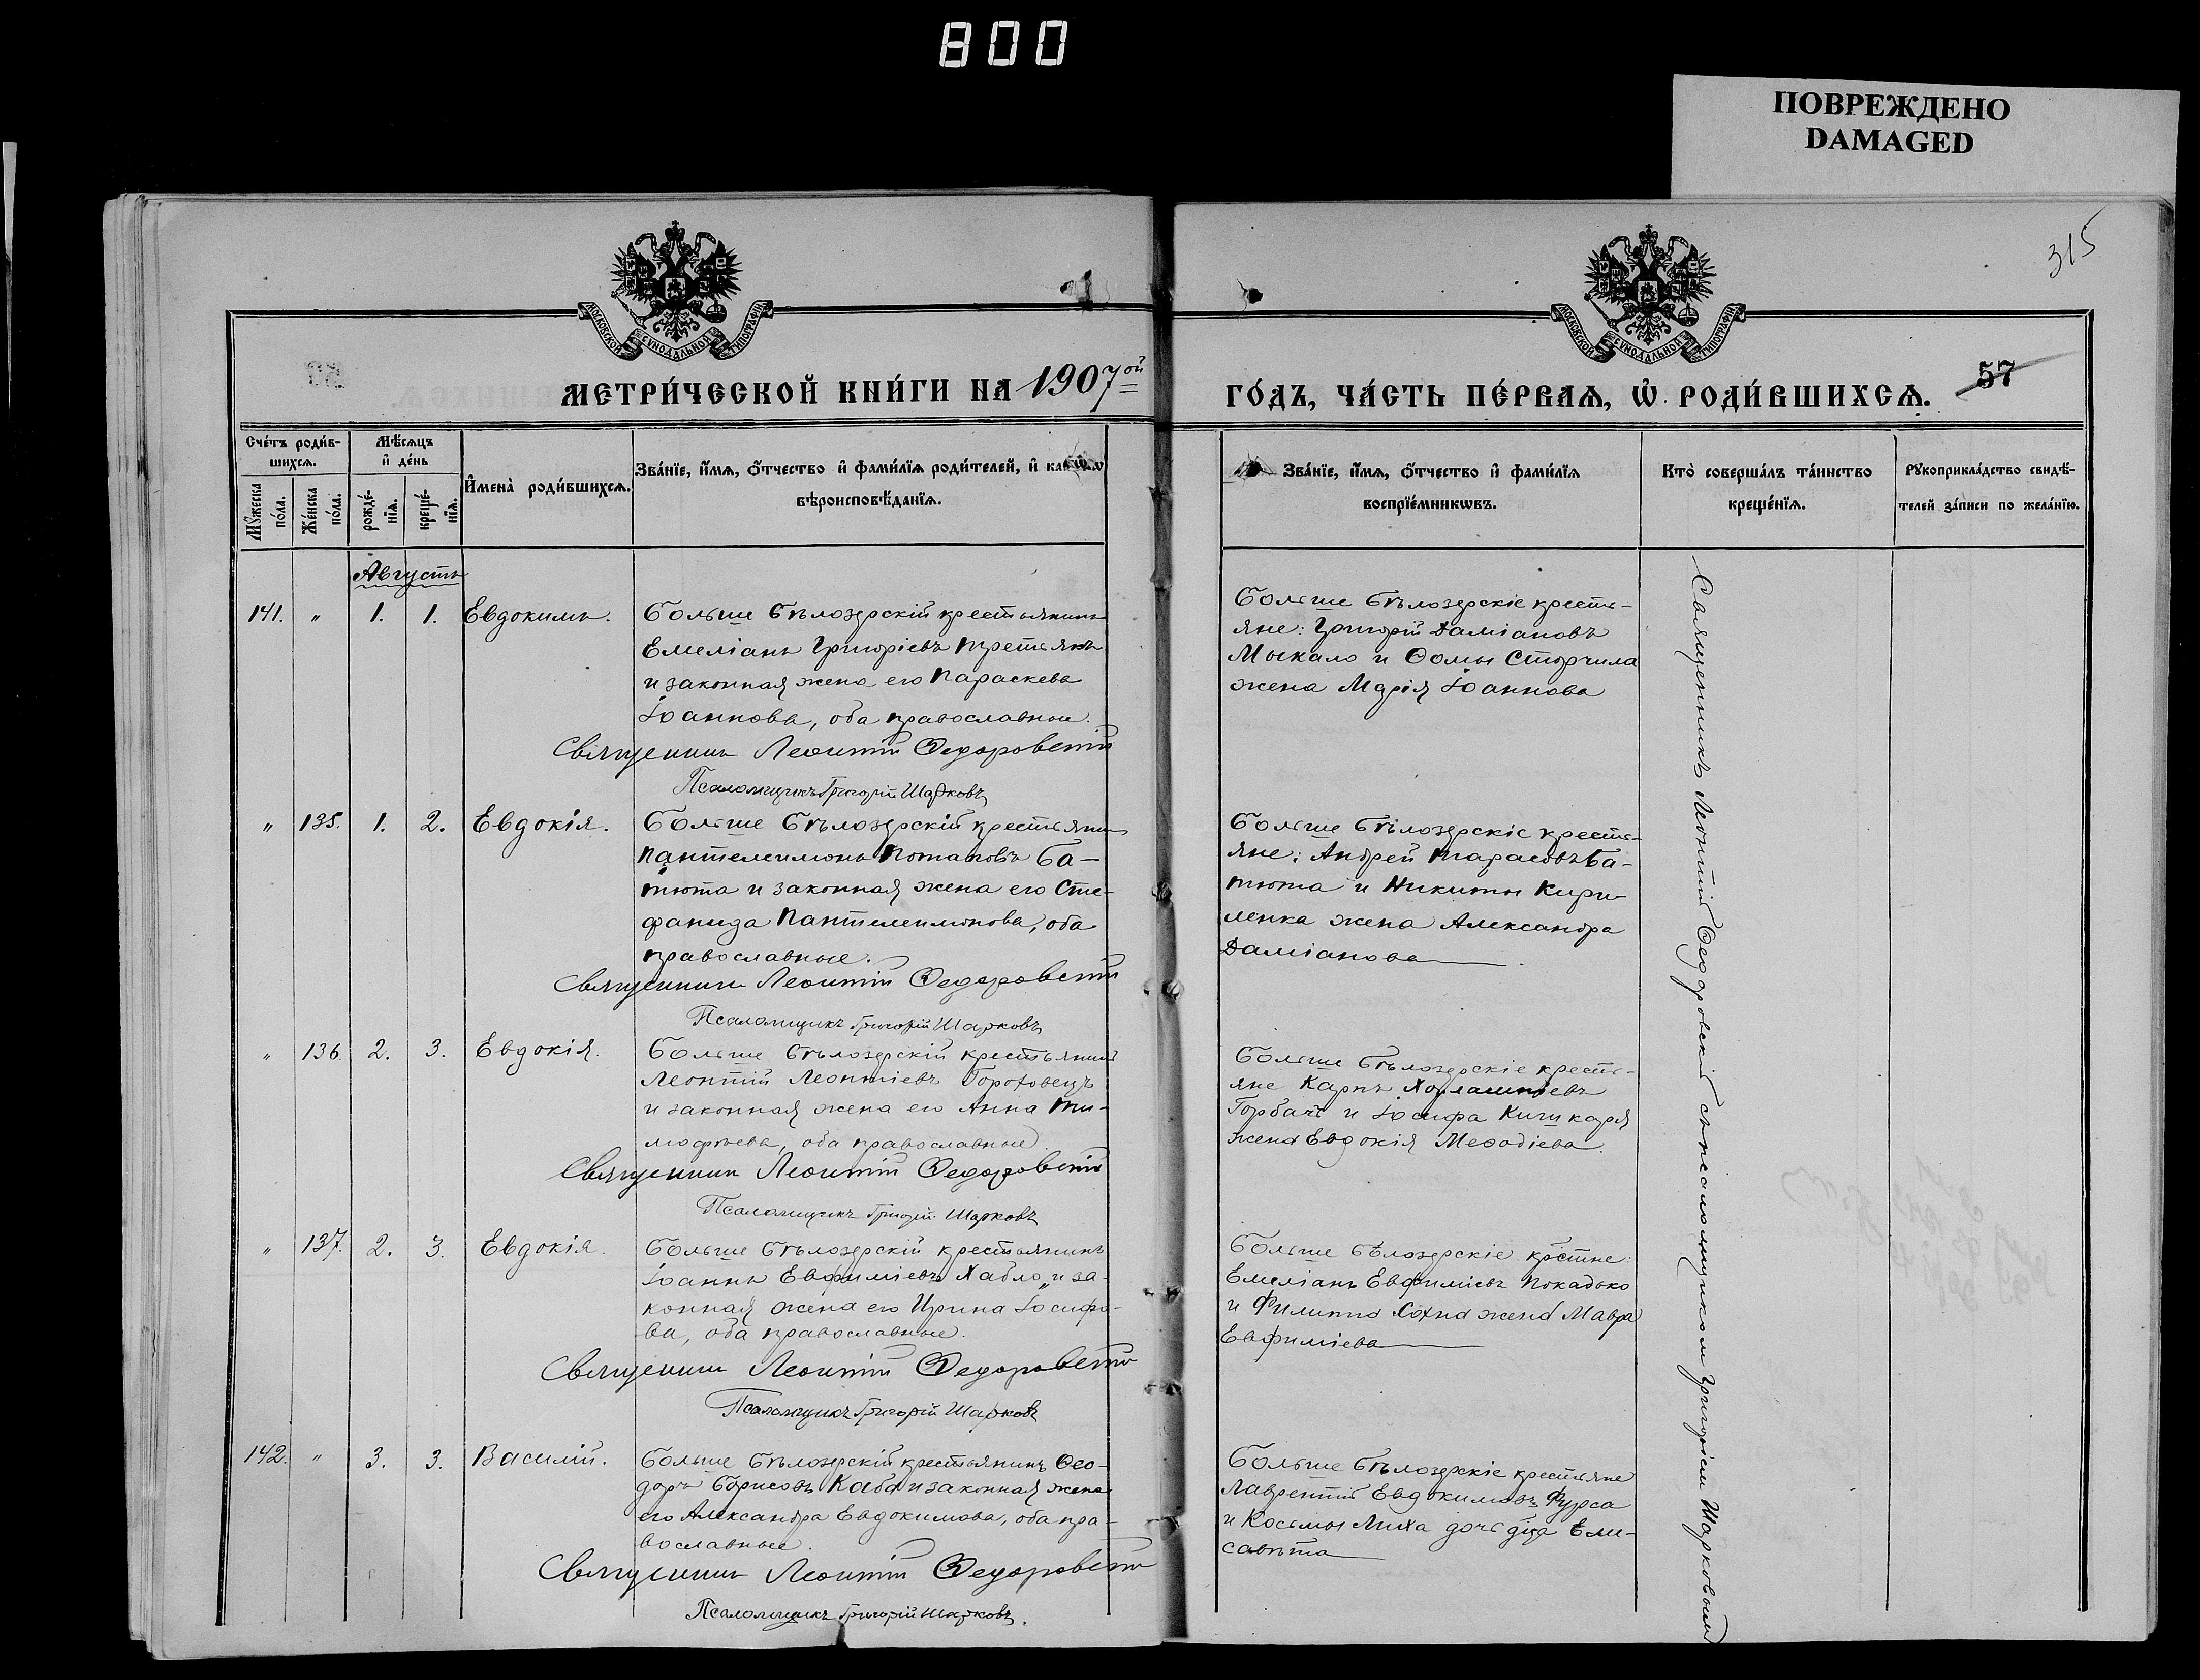 800
ПОВРЕЖДЕНО
DAMAGED
315
МОСКОВСКОЙ СѴНОДАЛЬНОЙ ТИПОГРАФІИ
МОСКОВСКОЙ СѴНОДАЛЬНОЙ ТИПОГРАФІИ
МЕТРИ́ЧЕСКОЙ КНИ́ГИ НА 1907ой
ГО́ДЪ, ЧА́СТЬ ПЕ́РВАѦ, Ѡ РОДИ́ВШИХСѦ. 57
Сче́тъ роди́в-
шихсѧ.
Мѣ́сѧцъ
и де́нь
Мꙋ́жеска
по́ла.
Же́нска
по́ла.
рожде́-
нїѧ.
креще́-
нїѧ.
Имена̀ роди́вшихсѧ.
Зва́нїе, и́мѧ, о́тчество и фами́лїѧ роди́телей, и како́гѡ
вѣроисповѣ́данїѧ.
Зва́нїе, и́мѧ, о́тчество и фами́лїѧ
воспрїе́мникѡвъ.
Кто̀ соверша́лъ та́инство
креще́нїѧ.
Рꙋкоприкла́дство свидѣ́-
телей за́писи по жела́нїю.
Августъ
141. " 1. 1. Евдокимъ.
Больше Бѣлозерскій крестьянинъ
Емеліанъ Григоріевъ Третьякъ
и законная жена его Параскева
Іоаннова, оба православные.
Священникъ Леонтій Ѳедоровскій
Псаломщикъ Григорій Шарковъ
Больше Бѣлозерскіе кресть-
яне: Григорій Даміановъ
Мыкало и Ѳомы Сторчила
жена Марія Іоаннова
" 135. 1. 2. Евдокія.
Больше Бѣлозерскій крестьянинъ
Пантелеимонъ Потаповъ Ба-
тюта и законная жена его Сте-
фанида Пантелеимонова, оба
православные.
Священникъ Леонтій Ѳедоровскій
Псаломщикъ Григорій Шарковъ
Больше Бѣлозерскіе кресть-
яне: Андрей Тарасовъ Ба-
тюта и Никиты Кири-
ленка жена Александра
Даміанова
" 136. 2. 3. Евдокія.
Больше Бѣлозерскій крестьянинъ
Леонтій Леонтіевъ Гороховецъ
и законная жена его Анна Ти-
мофѣева, оба православные.
Священникъ Леонтій Ѳедоровскій
Псаломщикъ Григорій Шарковъ
Больше Бѣлозерскіе кресть-
яне Карпъ Харлампіевъ
Горбачъ и Іосифа Кишкаря
жена Евдокія Меѳодіева.
" 137. 2. 3. Евдокія.
Больше Бѣлозерскій крестьянинъ
Іоаннъ Евфиміевъ Хабло и за-
конная жена его Ирина Іосифо-
ва, оба православные.
Священникъ Леонтій Ѳедоровскій
Псаломщикъ Григорій Шарковъ
Больше Бѣлозерскіе крстне:
Емеліанъ Евфиміевъ
и Филиппа Хохла жена Мавра
Евфиміева
142. " 3. 3. Василій.
Больше Бѣлозерскій крестьянинъ Ѳео-
доръ Борисовъ Каба и законная жена
его Александра Евдокимова, оба пра-
вославные.
Священникъ Леонтій Ѳедоровскій
Псаломщикъ Григорій Шарковъ.
Больше Бѣлозерскіе крестьяне
Лаврентій Евдокимовъ Фурса
и Косьмы Лиха дочь дѣца Ели-
савета
Священникъ Леонтій Ѳеодоровскій съ псаломщикомъ Григоріемъ Шарковымъ